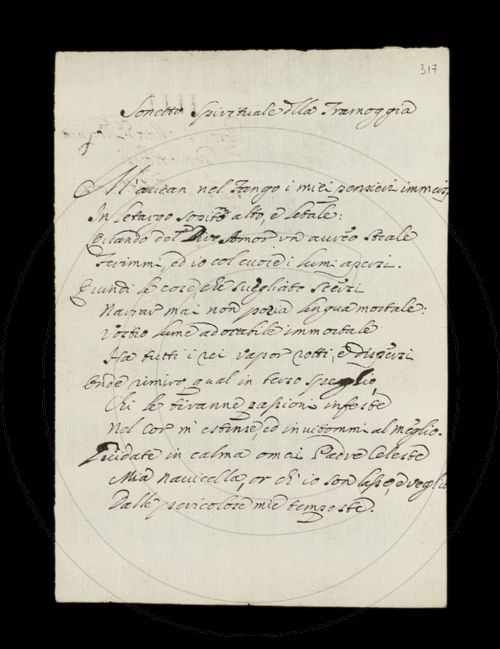 317
Sonetto Spirituale dlla Tramoggia
M'avean nel fango i miei pensieri immersi
In letargo sopito alto, e letale:
Quando del Divo Amor un aureo strale
Ferimmi, ed io col cuore i lumi apersi.
Quindi le cose che svegliato scersi
Narrar mai non potria lingua mortale:
Vostro lume adorabile immortale
Ha tutti i rei vapor rotti, e dispersi
Onde rimiro qual in terso speglio,
Chi le tiranne passioni infeste
Nel cor m'estinse, ed invitommi al meglio.
Guidate in calma omai Padre Celeste
Mia navicella, or ch'io son lasso, e veglio
Dalle pericolose mie tempeste.